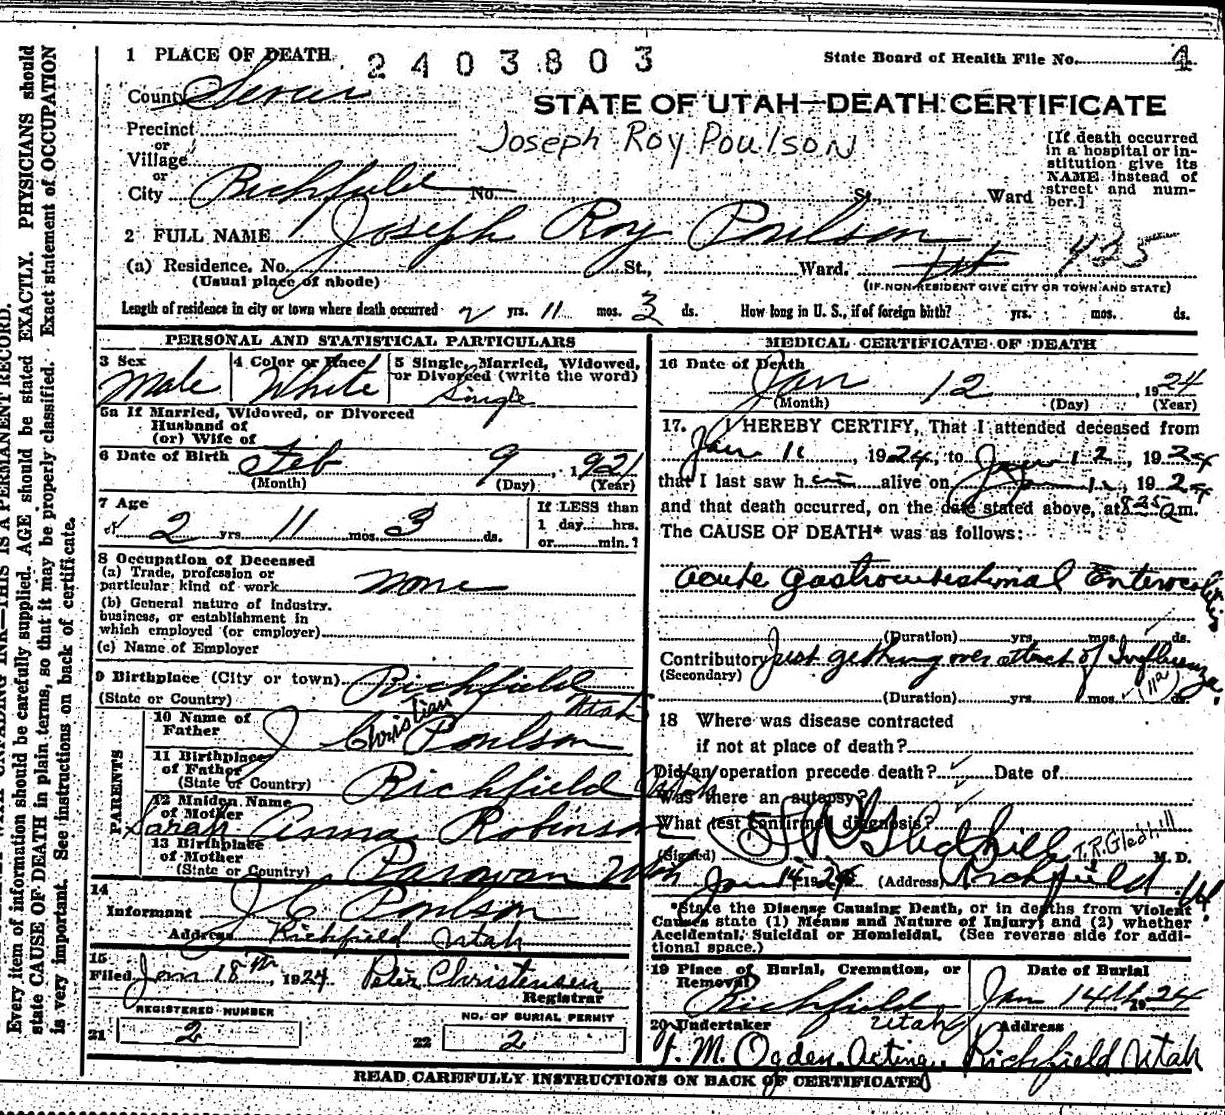 1 PLACE OF DEATH 2403803 State Board of Health File No. 4
County Sevier
STATE OF UTAH—DEATH CERTIFICATE
Precinct
or
Village
or
City Richfield No. St., Ward
Joseph Roy Poulson
[If death occurred in a hospital or institution give its NAME instead of street and number.]
2 FULL NAME Joseph Roy Poulson
(a) Residence. No. St., Ward. 1st 425
(Usual place of abode) (IF NON-RESIDENT GIVE CITY OR TOWN AND STATE)
Length of residence in city or town where death occurred 2 yrs. 11 mos. 3 ds. How long in U. S., if of foreign birth? yrs. mos. ds.
PERSONAL AND STATISTICAL PARTICULARS
3 Sex Male
4 Color or Race White
5 Single, Married, Widowed, or Divorced (write the word) Single
5a If Married, Widowed, or Divorced
Husband of
(or) Wife of
6 Date of Birth Feb 9, 1921
(Month) (Day) (Year)
7 Age
2 yrs. 11 mos. 3 ds.
If LESS than
1 day hrs.
or min.?
8 Occupation of Deceased
(a) Trade, profession or
particular kind of work none
(b) General nature of industry.
business, or establishment in
which employed (or employer)
(c) Name of Employer
9 Birthplace (City or town) Richfield
(State or Country) Utah
PARENTS
10 Name of Father J Christian Poulson
11 Birthplace of Father (State or Country) Richfield Utah
12 Maiden Name of Mother Sarah Anna Robinson
13 Birthplace of Mother (State or Country) Parowan Utah
14
Informant J C Poulson
Address Richfield Utah
15
Filed Jan 18th, 1924 Peter Christensen
Registrar
REGISTERED NUMBER
21 2
NO. OF BURIAL PERMIT
22 2
MEDICAL CERTIFICATE OF DEATH
16 Date of Death
Jan 12, 1924
(Month) (Day) (Year)
17. I HEREBY CERTIFY, That I attended deceased from
Jan 11, 1924, to Jan 12, 1924
that I last saw h alive on Jan, 1924
and that death occurred, on the date stated above, at 8 35 a m.
The CAUSE OF DEATH* was as follows:
acute gastrointestinal Enterocolitis
(Duration) yrs. mos. ds.
Contributory Just getting over attack of Influenza.
(Secondary)
(Duration) yrs. mos. ds. (11a)
18 Where was disease contracted
if not at place of death?
Did an operation precede death? Date of
Was there an autopsy?
What test confirmed diagnosis?
(Signed) T R Gledhill T.R. Gledhill M. D.
Jan 14 1924 (Address) Richfield Ut
*State the Disease Causing Death, or in deaths from Violent
Causes state (1) Means and Nature of Injury; and (2) whether
Accidental, Suicidal or Homicidal. (See reverse side for addi-
tional space.)
19 Place of Burial, Cremation, or Removal Richfield Utah
Date of Burial Jan 14th 1924
20 Undertaker Address
M. Ogden Acting. Richfield Utah
READ CAREFULLY INSTRUCTIONS ON BACK OF CERTIFICATE
UNFADING INK—THIS IS A PERMANENT RECORD.
Every item of information should be carefully supplied. AGE should be stated EXACTLY. PHYSICIANS should
state CAUSE OF DEATH in plain terms, so that it may be properly classified. Exact statement of OCCUPATION
is very important. See instructions on back of certificate.